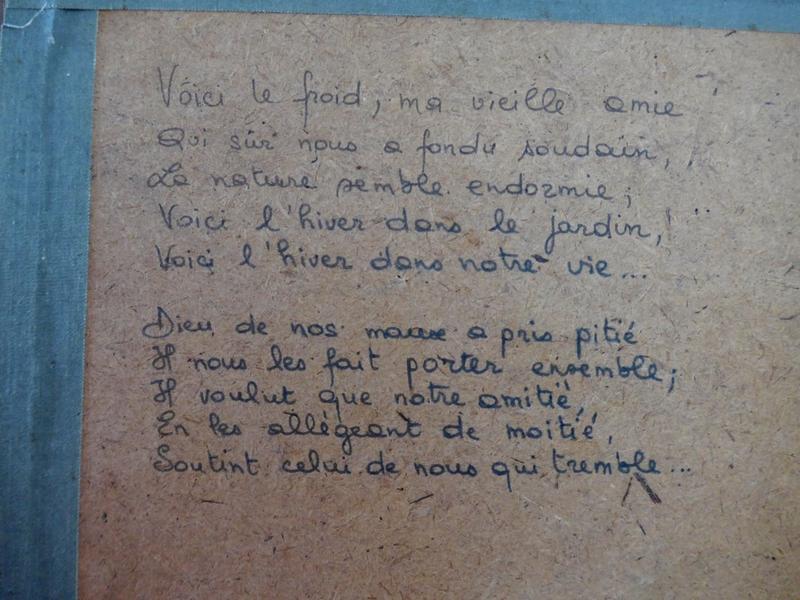 Voici le froid, ma vieille amie
Qui sur nous a fondu soudain,
La nature semble endormie ;
Voici l'hiver dans le jardin,
Voici l'hiver dans notre vie...
Dieu de nos maux a pris pitié
Il nous les fait porter ensemble ;
Il voulut que notre amitié,
En les allégeant de moitié,
Soutint celui de nous qui tremble...